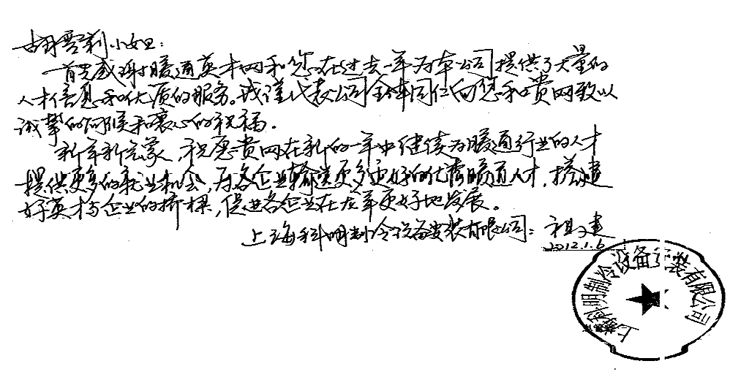 胡雪莉小姐:
首先感谢暖通英才网和您在过去一年为本公司提供了大量的
人才信息和优质的服务。我谨代表公司全体同仁向您和贵网致以
诚挚的问候和衷心的祝福。
新年新气象,祝愿贵网在新的一年中继续为暖通行业的人才
提供更多的就业机会,为各企业输送更多更好的优秀暖通人才,搭建
好英才与企业的桥梁,促进各企业在龙年更好地发展。
上海科明制冷设备安装有限公司:祖建
2012.1.6
上海科明制冷设备安装有限公司